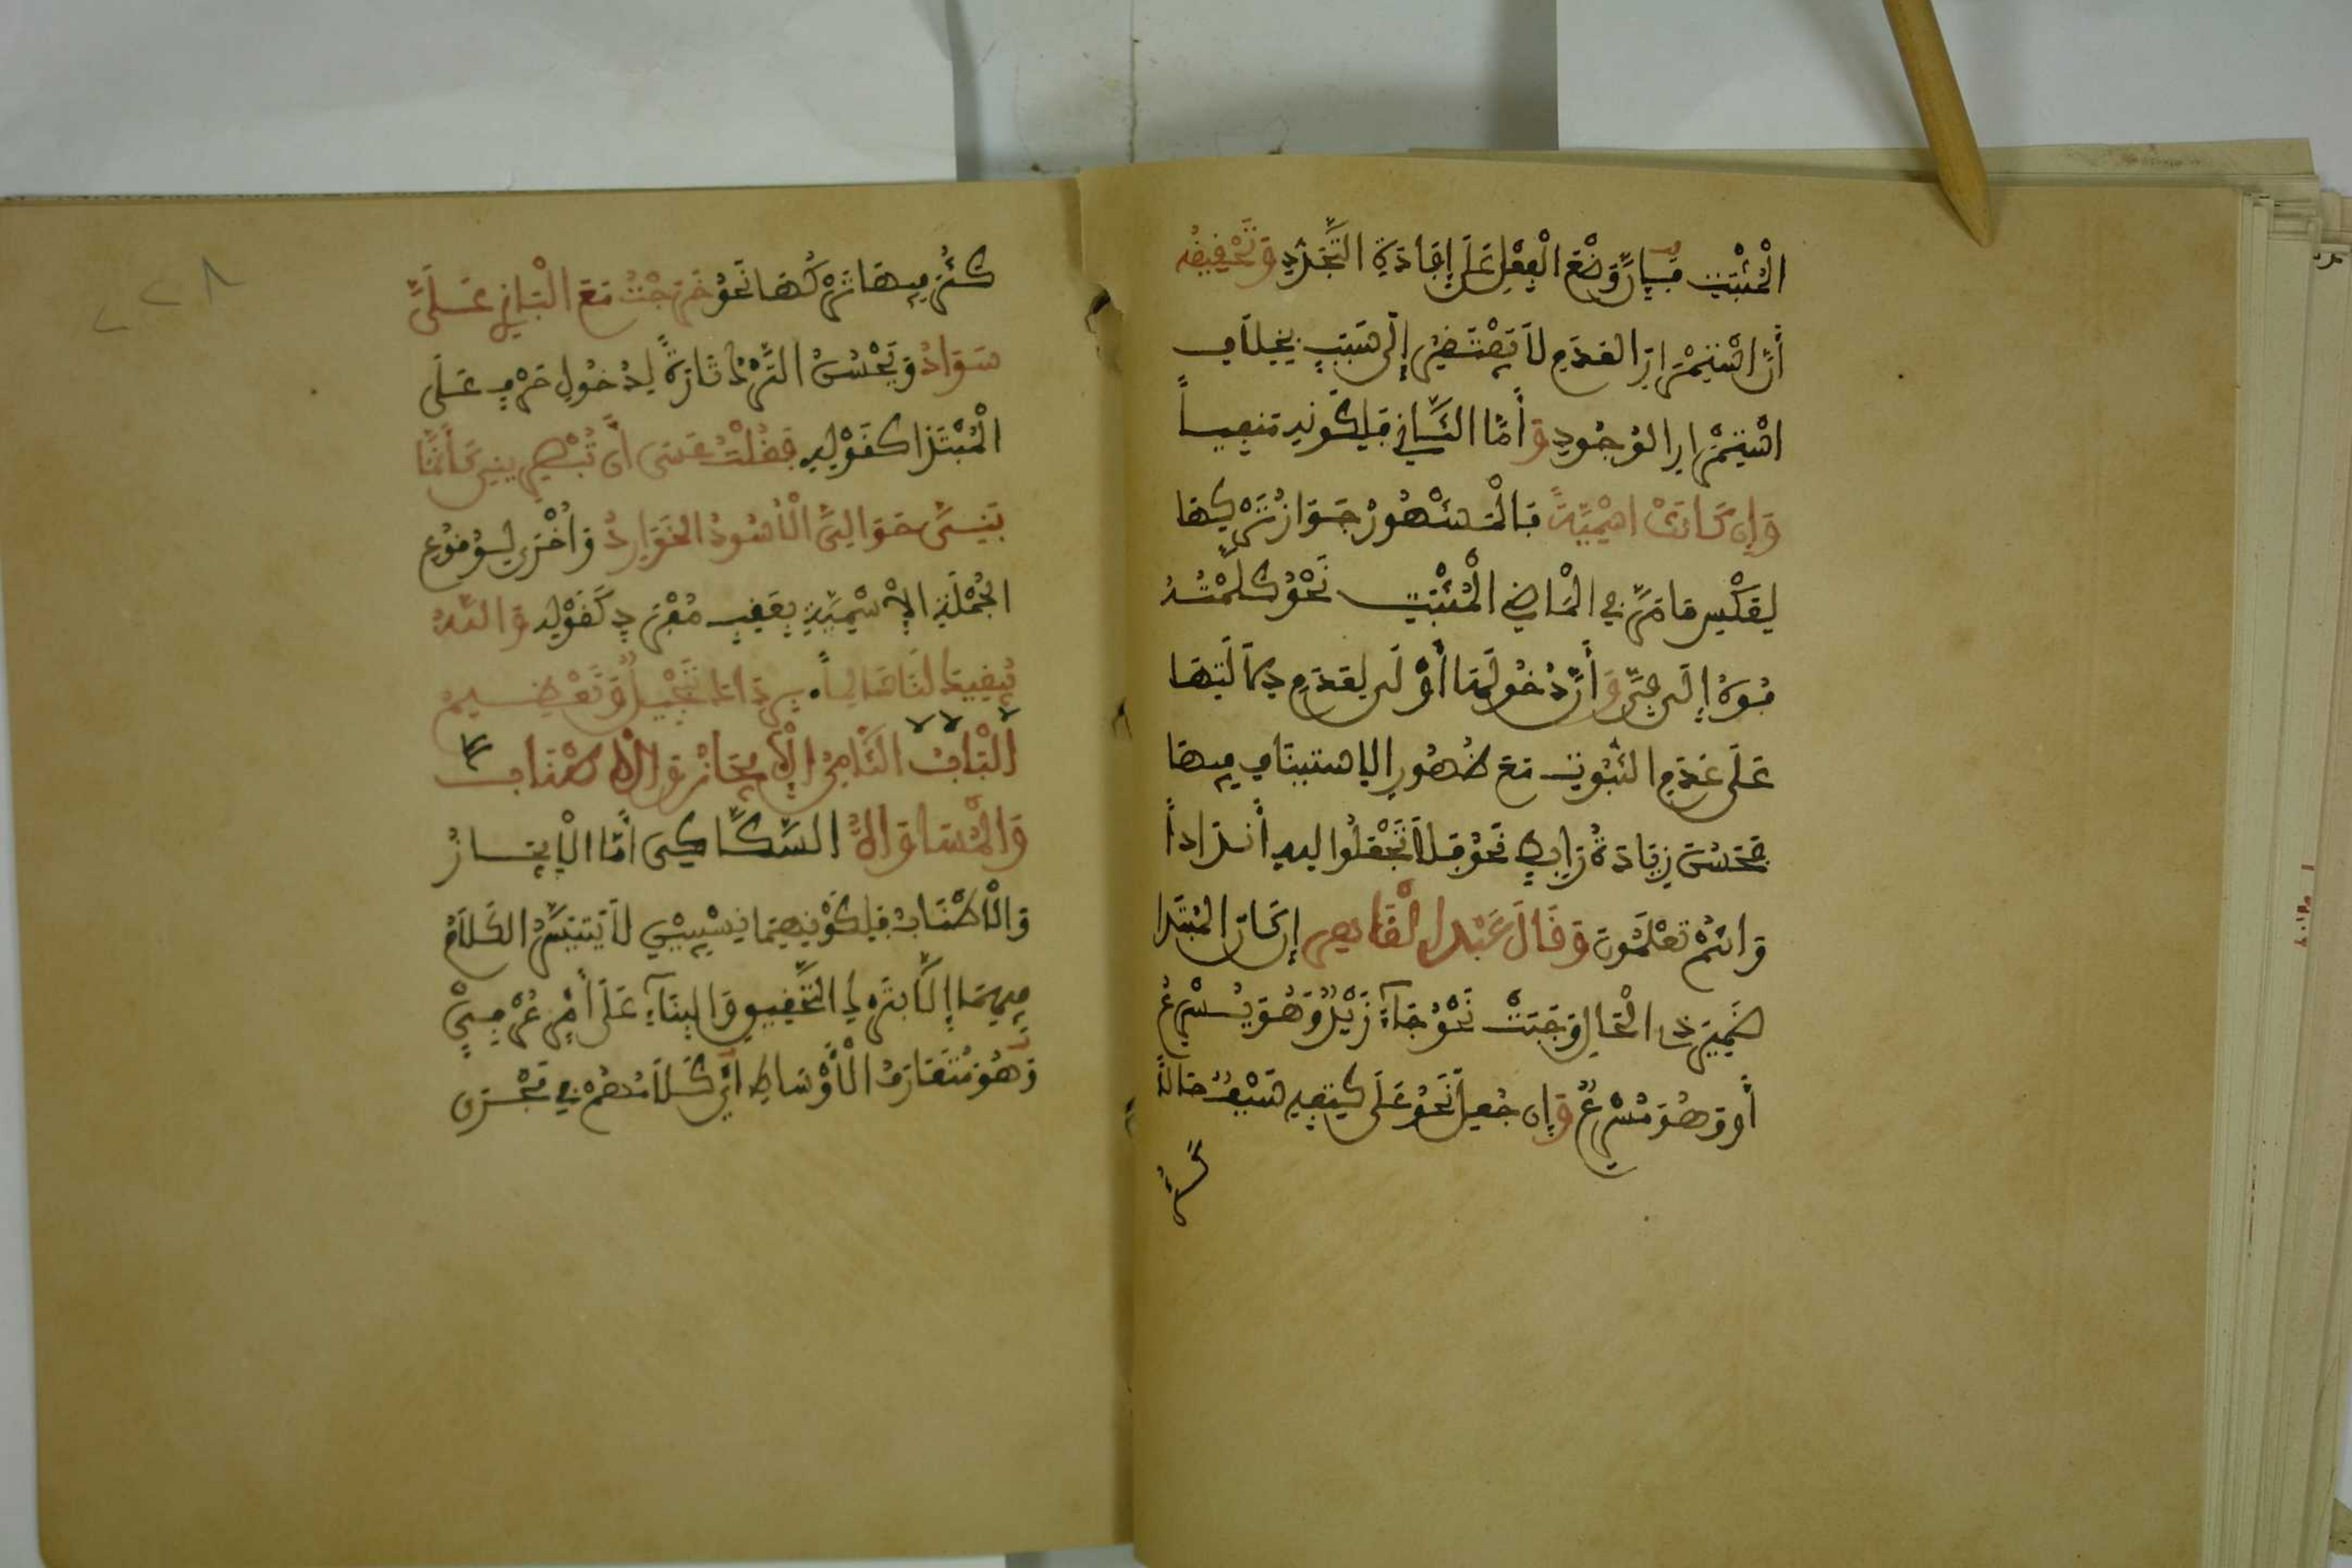 الْمُثْبَتِ فَإِنَّ وَضْعَ الْفِعْلِ عَلَى إِفَادَةِ التَّجَدُّدِ وَتَحْقِيقُهُ
أَنَّ اسْتِمْرَارَ الْعَدَمِ لَا يَفْتَقِرُ إِلَى سَبَبٍ بِخِلَافِ
اسْتِمْرَارِ الْوُجُودِ وَأَمَّا الثَّانِي فَلِكَوْنِهِ مَنْفِيّاً
وَإِن كَانَتْ اسْمِيَّةً فَالْمَشْهُورُ جَوَازُ تَرْكِهَا
لِعَكْسِ مَا مَرَّ فِي الْمَاضِي الْمُثْبَتِ نَحْوُ كَلَّمْتُهُ
فُوهُ إِلَى فِيَّ وَأَنَّ دُخُولَهَا أَوْلَى لِعَدَمِ دِلَالَتِهَا
عَلَى عَدَمِ الثُّبُوتِ مَعَ ظُهُورِ الِاسْتِينَافِ فِيهَا
فَحَسُنَ زِيَادَةُ رَابِطٍ نَحْوُ فَلَا تَجْعَلُوا لِلهِ أَندَاداً
وَأَنتُمْ تَعْلَمُونَ وَقَالَ عَبْدُ الْقَاهِرِ إِن كَانَ الْمُبْتَدَا
ضَمِيرَ ذِي الْحَالِ وَجَبَتْ نَحْوُ جَاءَ زَيْدٌ وَهُوَ يُسْرِعُ
أَو وَهُوَ مُسْرِعٌ وَإِن جُعِلَ نَحْوُ عَلَى كَتِفِهِ سَيْفٌ حَالاً
كَثُرَ
٢٢٨
كَثُرَ فِيهَا تَرْكُهَا نَحْوُ خَرَجْتُ مَعَ الْبَازِي عَلَيَّ
سَوَادُ وَيَحْسُنُ التَّرْكُ تَارَةً لِدُخُولِ حَرْفٍ عَلَى
الْمُبْتَدَا كَقَوْلِهِ فَقُلْتُ عَسَى أَن تُبْصِرِينِي كَأَنَّمَا
بَنِيَّ حَوَالَيَّ الْأُسُودُ الْحَوَارِدُ وَأُخْرَى لِوُقُوعِ
الْجُمْلَةِ الْإِسْمِيَّةِ بِعَقِبِ مُفْرَدٍ كَقَوْلِهِ وَاللَّهُ
يُبْقِيكَ لَنَا سَالِماً بُرْدَاكَ تَبْجِيلٌ وَتَعْظِيمُ
الْبَابُ الثَّامِنُ الْإِيجَازُ وَالْإِطْنَابُ
وَالْمُسَاوَاةُ السَّكَّاكِي أَمَّا الْإِيجَازُ
وَالْإِطْنَابُ فَلِكَوْنِهِمَا نِسْبِيَّيْنِ لَا يَتَيَسَّرُ الْكَلَامُ
فِيهِمَا إِلَّا بِتَرْكِ التَّحْقِيقِ وَالْبِنَاءِ عَلَى أَمْرٍ عُرْفِيٍّ
وَهُوَ مُتَعَارَفُ الْأَوْسَاطِ أَيْ كَلَامُهُمْ فِي مَجْرَى